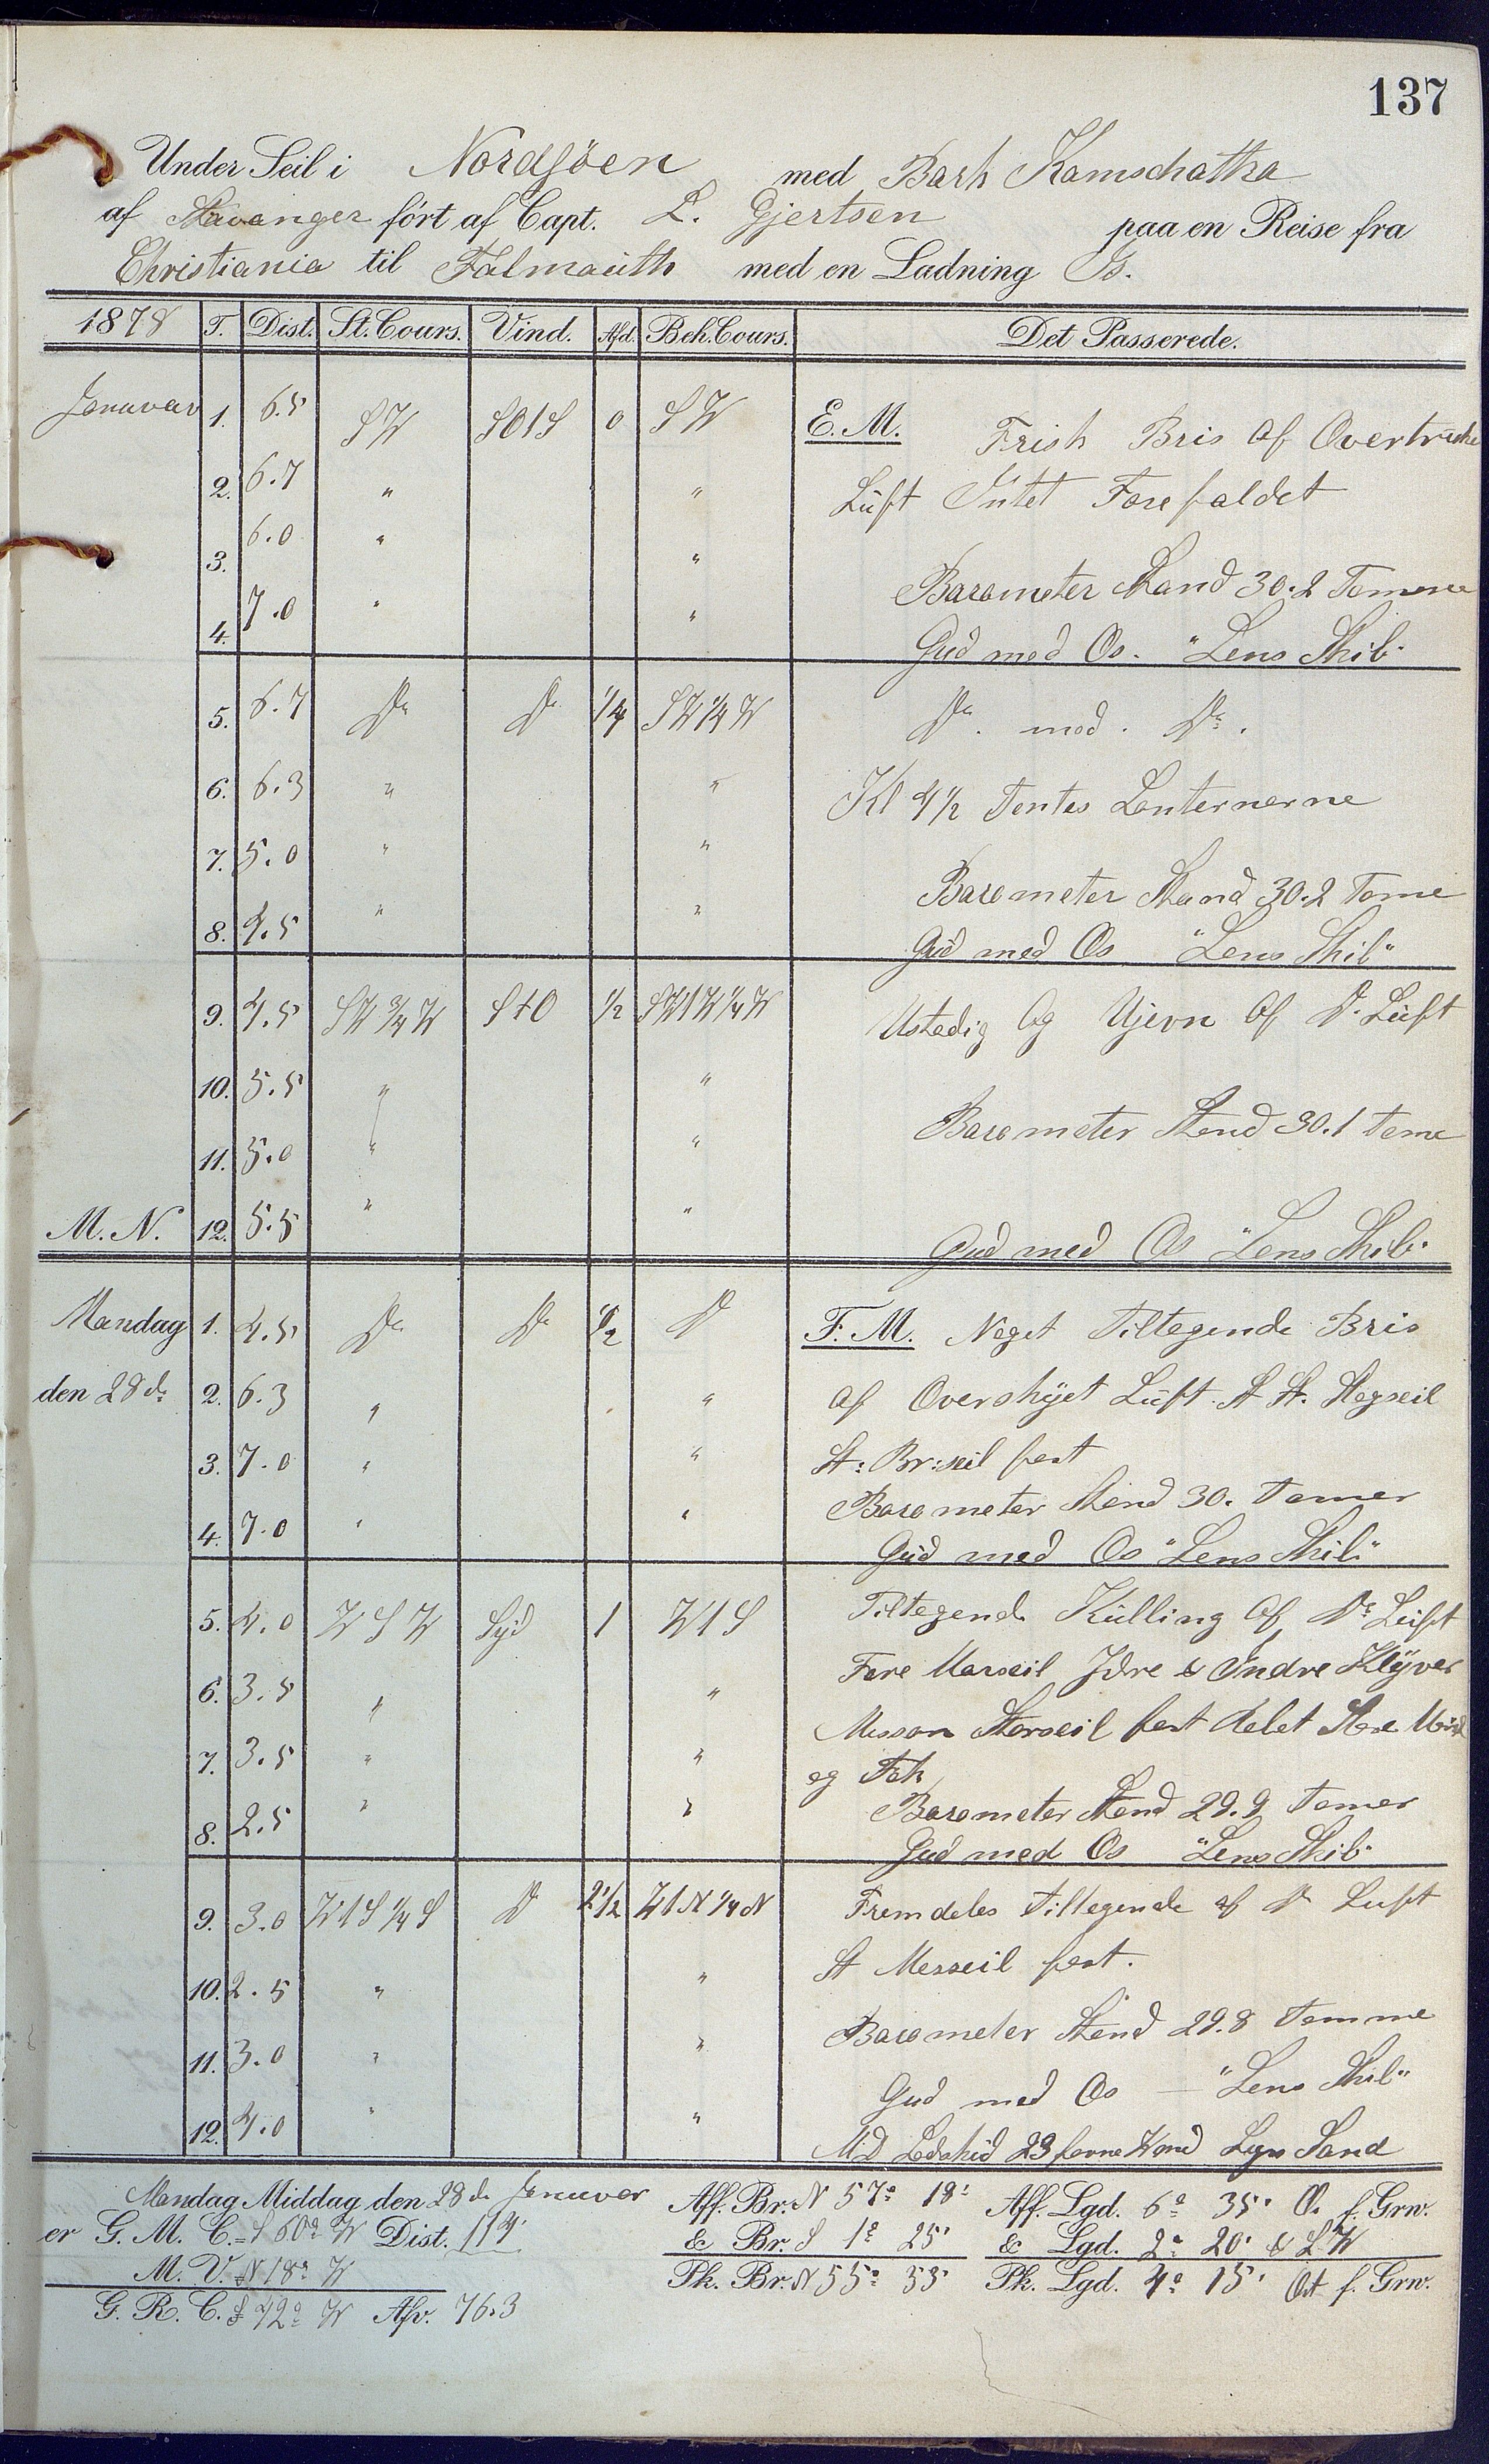 137
Under Seil i Nordsöen med Bark Kamschatka
af Stavanger fört af Capt. L. Gjertsen paa en Reise fra
Christiania til Falmouth med en Ladning Is.
1878 T. Dist. St. Cours. Vind. Afd. Beh. Cours. Det Passerede.
Januvar 1. 6.5 SW SO1S 0 SW E. M. Frisk Bris af Overtrukke
2. 6.7 " " Lüft Intet Forefaldet
3. 6.0 " " Barometer Stand 30.2 Tomme
4. 7.0 " " Gud med Os. "Lens Skib"
5. 6.7 Do Do 1/4 SW 1/4 W Do. med. Do.
6. 6.3 " " Kl 4 1/2 Tentes Lanternerne
7. 5.0 " " Barometer Stand 30.2 Tome
8. 4.5 " " Gud med Os "Lens Skib"
9. 4.5 SW 3/4 W StO 1/2 SW1W 1/4 W Ustadig Og Ujevn Af Do Lüft
10. 5.5 " "
11. 5.0 " " Barometer Stand 30.1 Tome
M. N. 12. 5.5 " " Gud med Os "Lens Skib"
Mandag 1. 4.5 Do Do 1/2 Do F. M. Noget Tiltagende Bris
den 28de 2. 6.3 " " af Overskyet Lüft. St St. Stagseil
3. 7.0 " " St: Br: seil fast
4. 7.0 " " Barometer Stand 30. Tomer
Gud med Os "Lens Skib"
5. 4.0 WSW Syd 1 W1S Tiltagende Külling Af Do Lüft
6. 3.5 " " Fore Marseil Jdre & Indre Klÿver
7. 3.5 " " Messan Storseil fast
og Fok
8. 2.5 " " Barometer Stand 29.9 Tomer
Gud med Os "Lens Skib"
9. 3.0 W1S 1/4 S Do 2 1/2 W1N 1/4 N Fremdeles Tiltagende af Do Luft
10. 2.5 " " St Merseil fast.
11. 3.0 " " Barometer Stand 29.8 Tomme
Gud med Os — "Lens Skib"
12. 4.0 " " MD Lodskud 23 favne Vand Lys Sand
Mandag Middag den 28de Januvar Aff. Br. N 57° 18' Aff. Lgd. 6° 35' O. f. Grw.
er G. M. C. = S 60° W Dist. 114' & Br. S 1° 25' & Lgd. 2° 20'
M. V. N 18° W Pk. Br. N 55° 53' Pk. Lgd. 4° 15' Ost f. Grw.
G. R. C. S 42° W Afv. 76.3